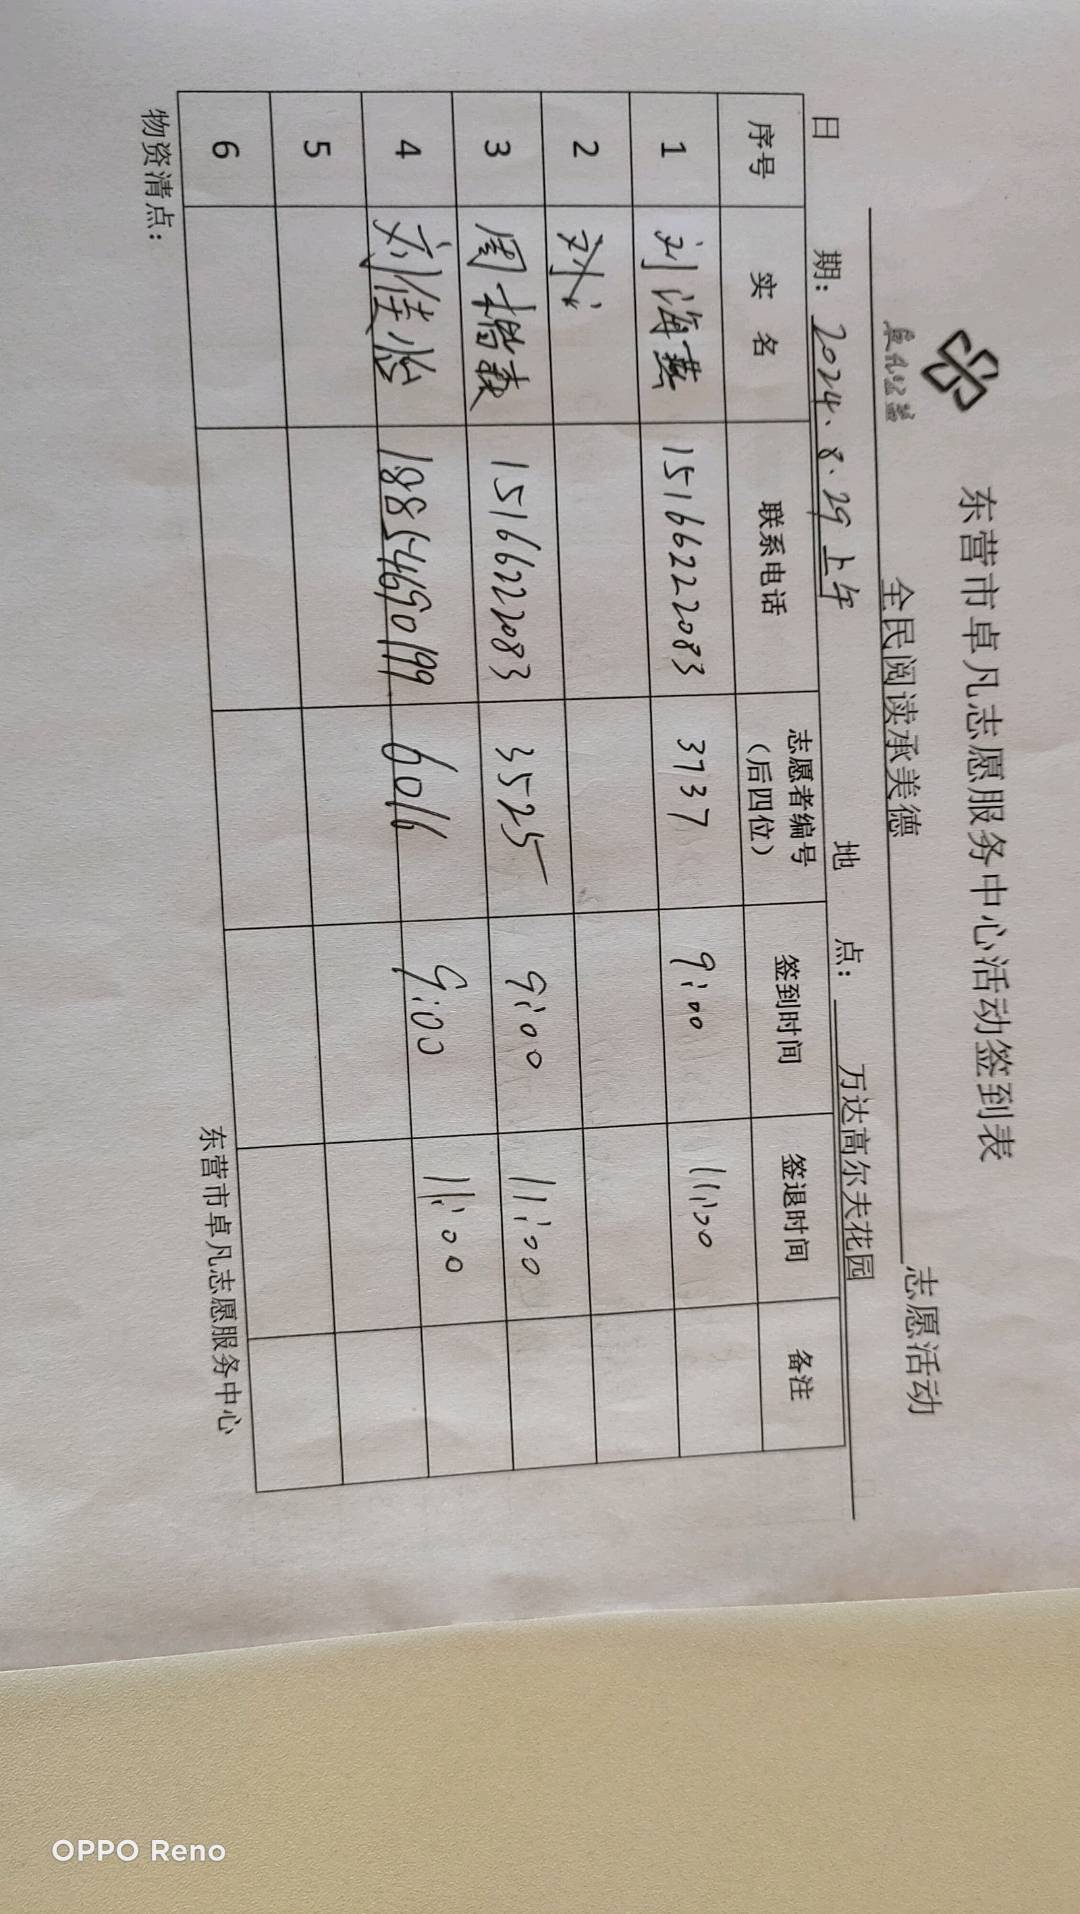 东营市卓凡志愿服务中心活动签到表
卓凡公益
全民阅读承美德 志愿活动
日 期：2024.8.29上午 地 点： 万达高尔夫花园
序号 实 名 联系电话 志愿者编号（后四位） 签到时间 签退时间 备注
1 刘海燕 15166222083 3737 9:00 11:00
2 刘
3 周增 15166222083 3525 9:00 11:00
4 刘佳 18854690199 6016 9:00 11:00
5
6
物资清点：
东营市卓凡志愿服务中心
OPPO Reno